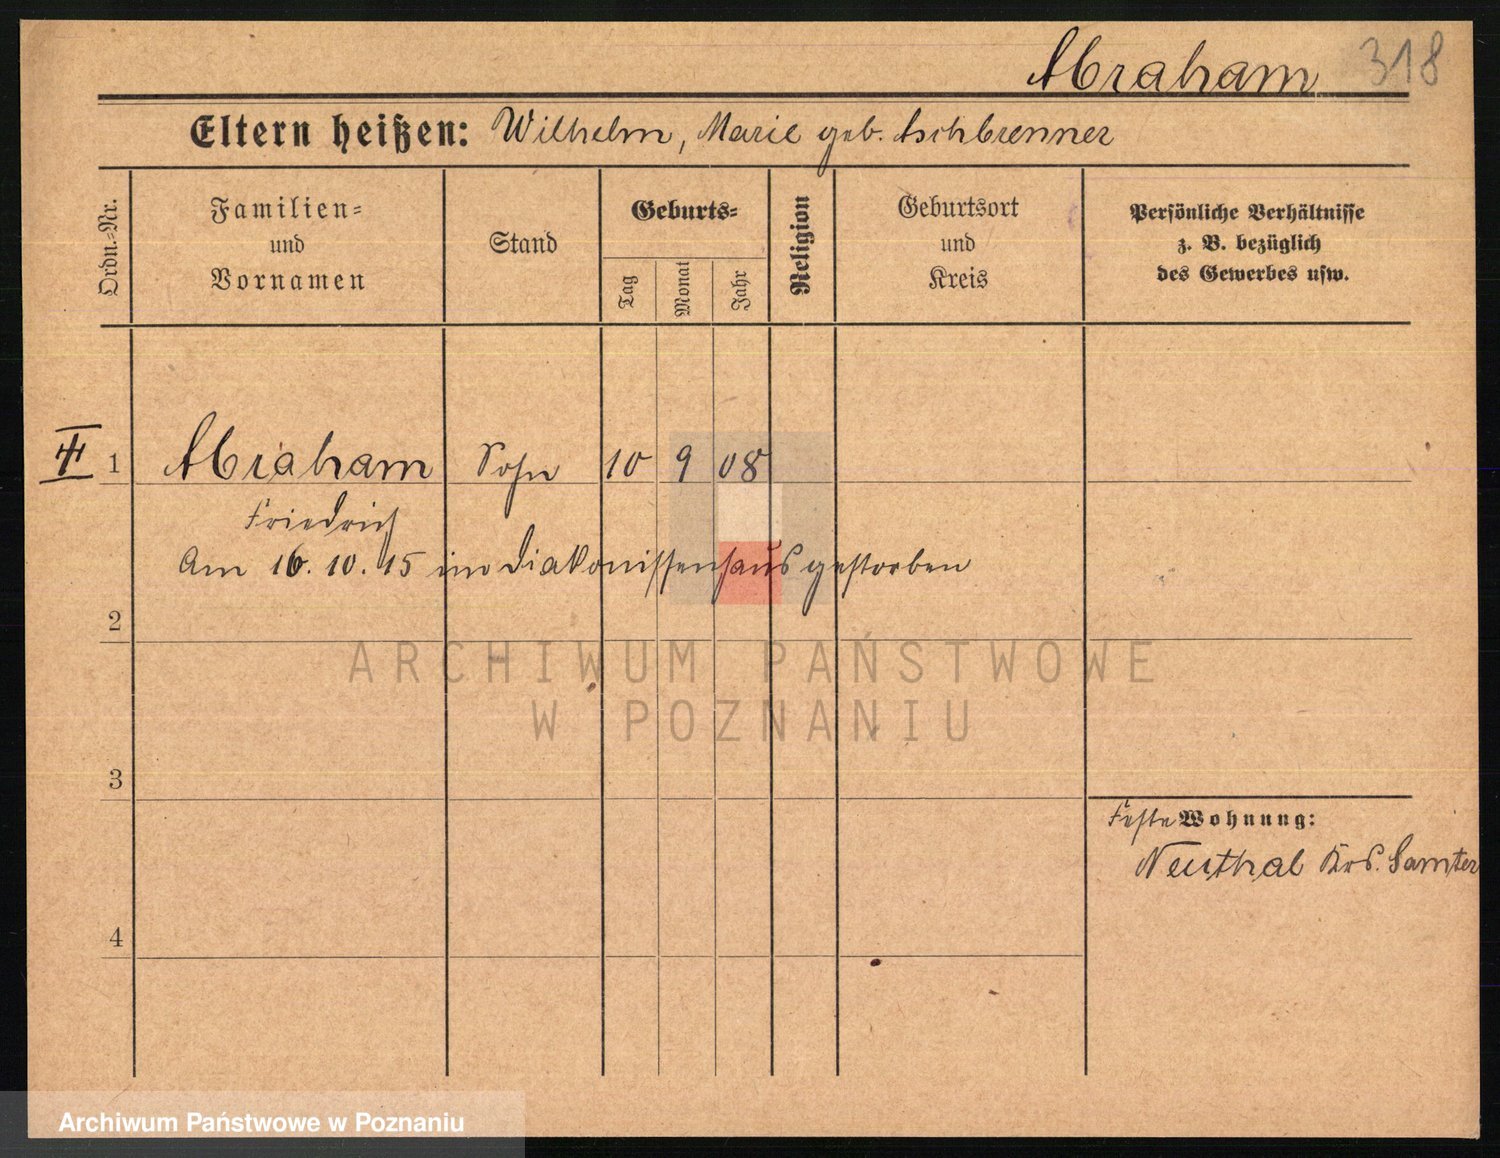 Abraham 318
Eltern heißen: Wilhelm, Marie geb. Aschbrenner
Ordn.-Nr.
Familien-
und
Vornamen
Stand
Geburts-
Tag
Monat
Jahr
Religion
Geburtsort
und
Kreis
Persönliche Verhältnisse
z. B. bezüglich
des Gewerbes usw.
1 Abraham Sohn 10 9 08
Friedrich
Am 16. 10. 15 im Diakonissenhaus gestorben
2
ARCHIWUM PAŃSTWOWE
W POZNANIU
3
Feste Wohnung:
Neuthal Krs. Samter
4
Archiwum Państwowe w Poznaniu